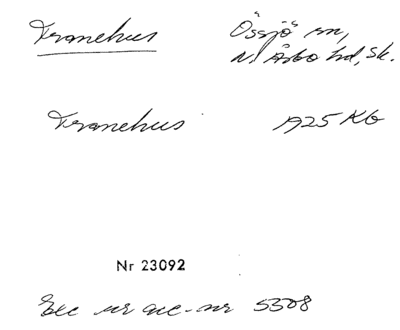 Tranehus Össjö sn,
N. Åsbo hd, Sk.
Tranehus 1925 KG
Nr 23092
Exc ur acc-nr 5308